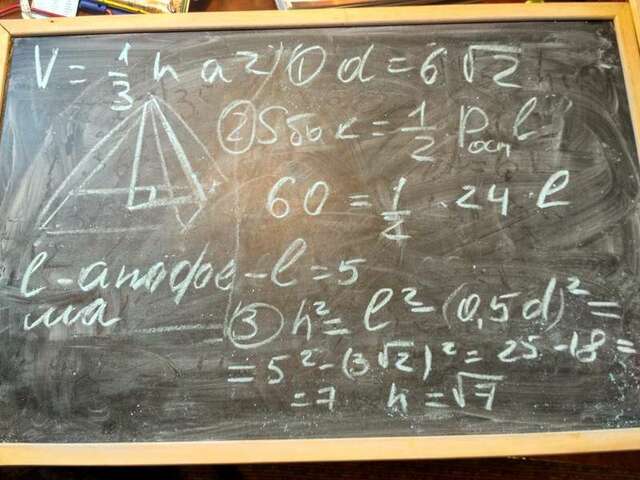 V = 1/3 h a² 1) d = 6√2
2) Sбок = 1/2 Pосн l
60 = 1/2 · 24 · l
l - апофе - l = 5
ма
3) h² = l² - (0,5d)² =
= 5² - (3√2)² = 25 - 18 =
= 7 h = √7